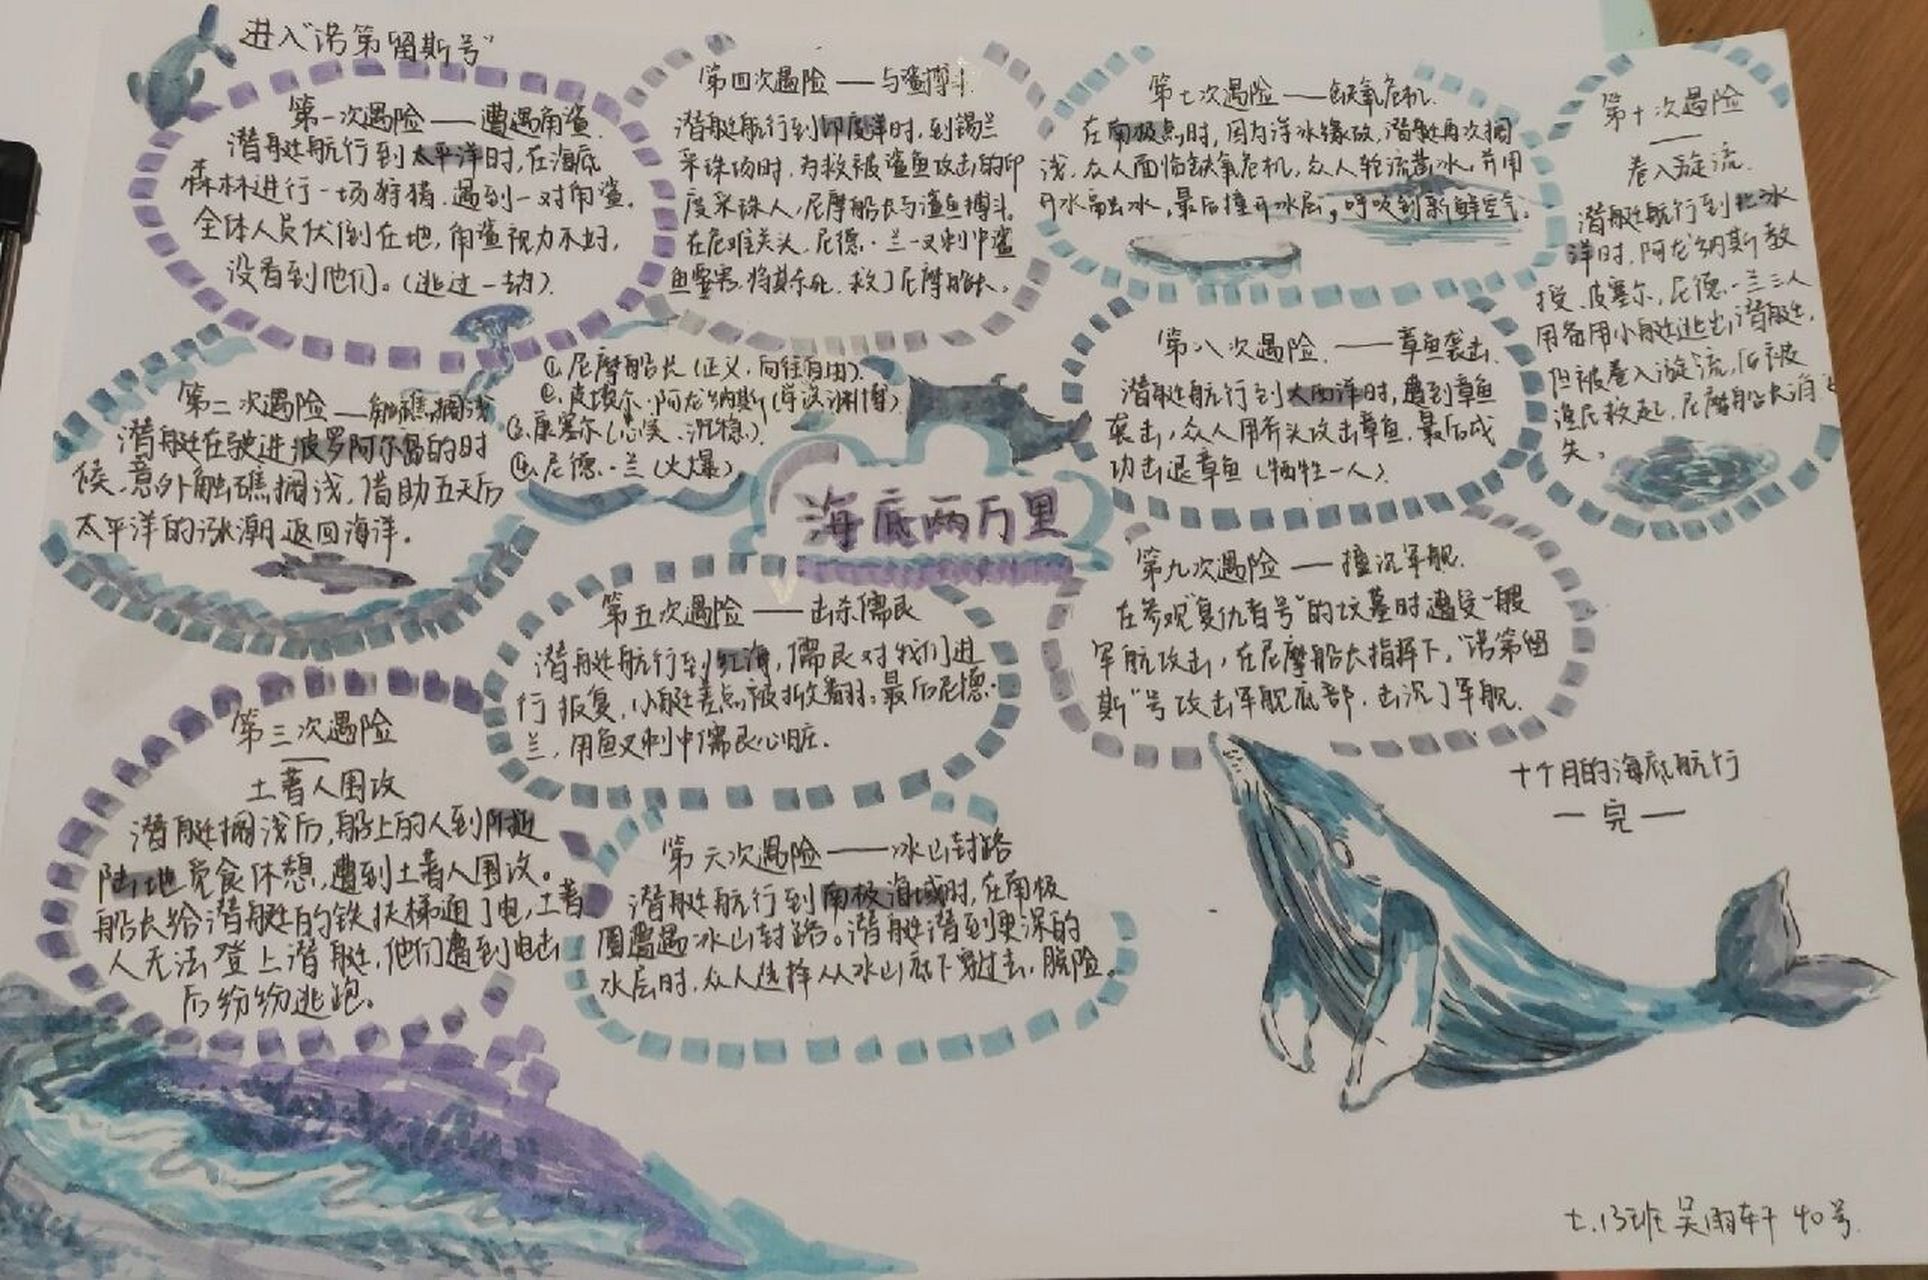 进入"诺第留斯号"
第一次遇险——遭遇角鲨.
潜艇航行到太平洋时,在海底
森林进行一场狩猎.遇到一对角鲨.
全体人员伏倒在地,角鲨视力不好,
没看到他们。(逃过一劫).
第二次遇险——触礁搁浅
潜艇在驶进波罗阿尔岛的时
候,意外触礁搁浅,借助五天后
太平洋的涨潮返回海洋.
第三次遇险
——
土著人围攻
潜艇搁浅后,船上的人到附近
陆地觅食休憩,遭到土著人围攻。
船长给潜艇的铁扶梯通了电,土著
人无法登上潜艇,他们遭到电击
后纷纷逃跑。
第四次遇险——与鲨搏斗.
潜艇航行到印度洋时,到锡兰
采珠场时,为救被鲨鱼攻击的印
度采珠人,尼摩船长与鲨鱼搏斗.
在危难关头,尼德·兰一叉刺中鲨
鱼要害.将其杀死,救了尼摩船长。
①.尼摩船长(正义,向往自由).
②.皮埃尔·阿龙纳斯(学识渊博)
③.康塞尔(忠诚、沉稳).
④.尼德·兰(火爆)
海底两万里
第五次遇险——击杀儒艮
潜艇航行到红海,儒艮对我们进
行报复,小艇差点被掀翻。最后尼德·
兰,用鱼叉刺中儒艮心脏.
第六次遇险——冰山封路
潜艇航行到南极海域时,在南极
圈遭遇冰山封路。潜艇潜到更深的
水层时,众人选择从冰山底下穿过去,脱险。
第七次遇险——缺氧危机.
在南极点时,因为浮冰缘故,潜艇再次搁
浅,众人面临缺氧危机,众人轮流凿冰,并用
开水冰,最后撞开冰层,呼吸到新鲜空气.
第八次遇险.——章鱼袭击.
潜艇航行到大西洋时,遭到章鱼
袭击,众人用斧头攻击章鱼.最后成
功击退章鱼(牺牲一人).
第九次遇险——撞沉军舰.
在参观"复仇者号"的坟墓时遭受一艘
军舰攻击,在尼摩船长指挥下,"诺第留
斯"号攻击军舰底部.击沉了军舰.
第十次遇险
——
卷入旋流.
潜艇航行到北冰
洋时,阿龙纳斯教
授、康塞尔,尼德·兰三人
用备用小艇逃出潜艇,
但被卷入漩流,后被
渔民救起,尼摩船长消
失。
十个月的海底航行
—完—
七.13班吴雨轩 40号